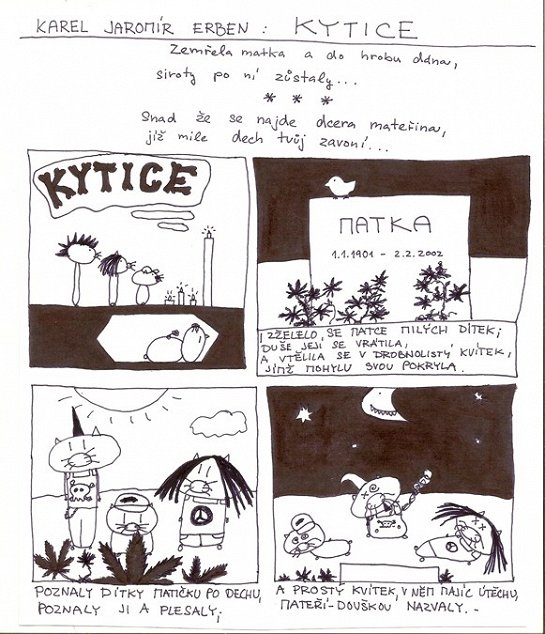 KAREL JAROMÍR ERBEN : KYTICE
Zemřela matka a do hrobu dána,
siroty po ní zůstaly...
* * *
Snad že se najde dcera mateřina,
jíž mile dech tvůj zavoní...
KYTICE
MATKA
1.1.1901 - 2.2.2002
I ZŽELELO SE MATCE MILÝCH DÍTEK;
DUŠE JEJÍ SE VRÁTILA,
A VTĚLILA SE V DROBNOLISTÝ KVÍTEK,
JÍMŽ MOHYLU SVOU POKRYLA.
POZNALY DÍTKY MATIČKU PO DECHU,
POZNALY JI A PLESALY;
A PROSTÝ KVÍTEK, V NĚM MAJÍC ÚTĚCHU,
MATEŘÍ-DOUŠKOU NAZVALY.-